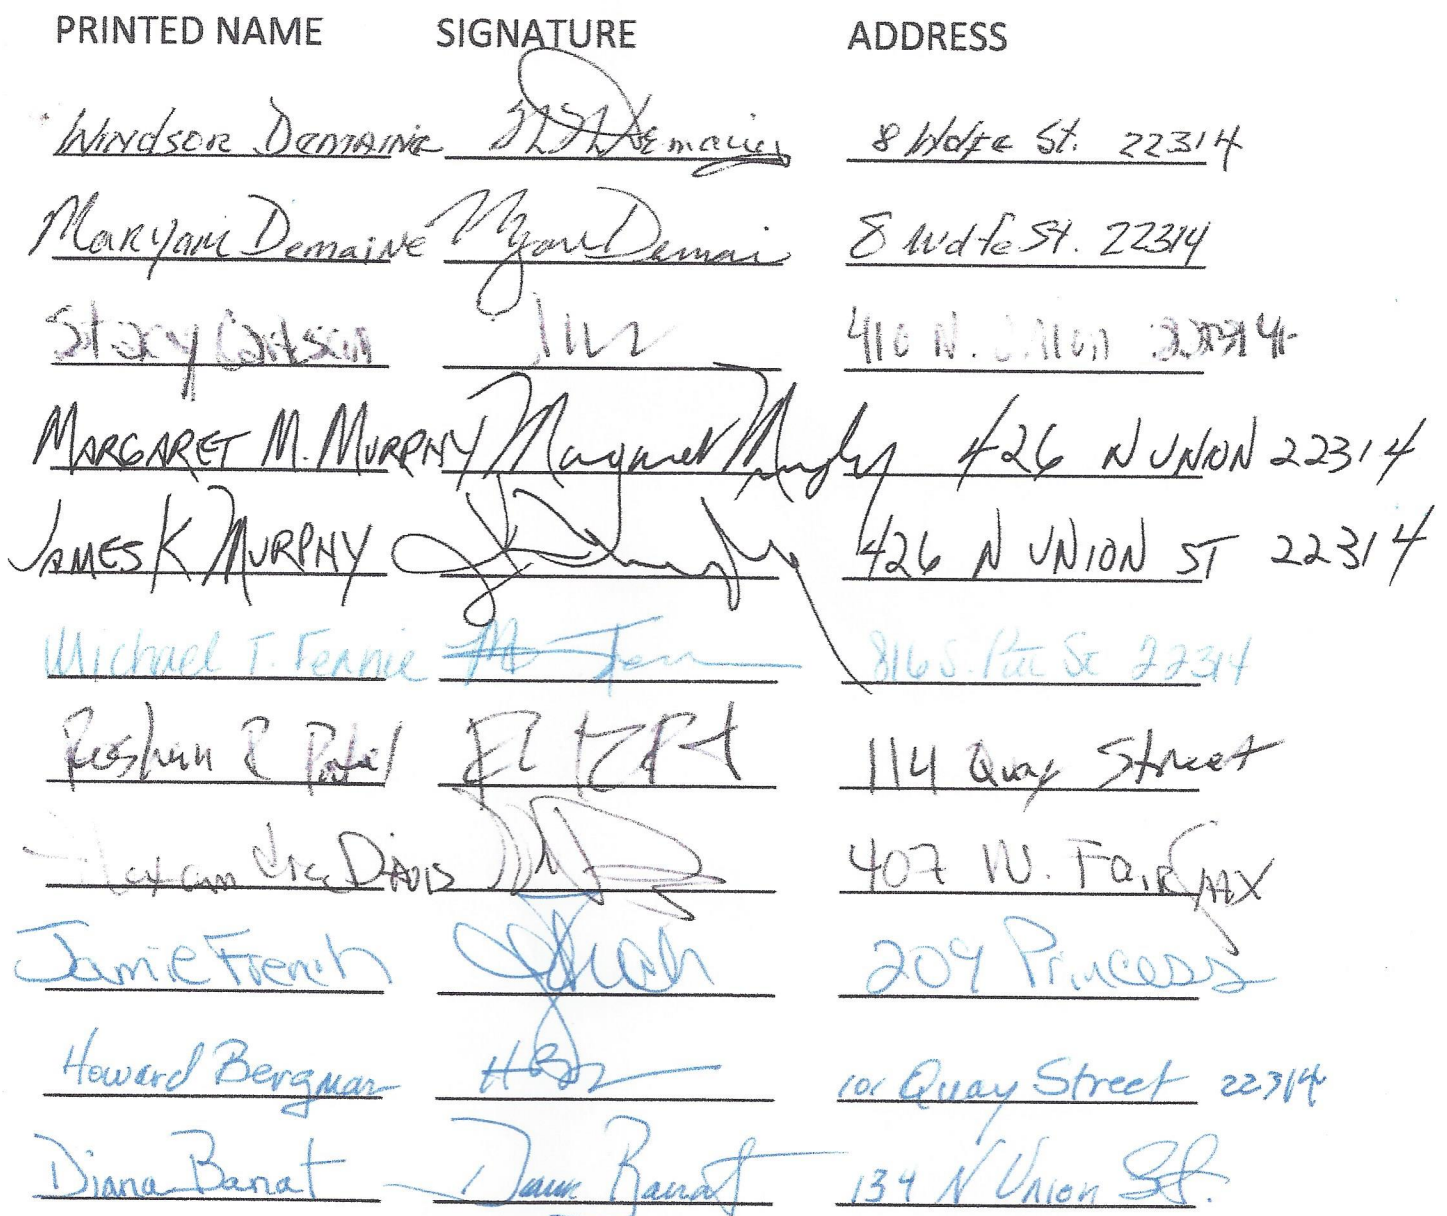 PRINTED NAME SIGNATURE ADDRESS
Windsor Demaine Demaine 8 Wolfe St. 22314
Maryam Demaine Demai 8 Wolfe St. 22314
Stacy Carlson 410 N. Union 22314
MARGARET M. MURPHY Margaret Murphy 426 N UNION 22314
JAMES K MURPHY 426 N UNION ST 22314
Michael T. Fennie 816 S. Pitt St 22314
R Patel 114 Quay Street
Davis 407 N. Fairfax
Jamie French 209 Princess
Howard Bergman 101 Quay Street 22314
Diana Banat Diana Banat 134 N Union St.